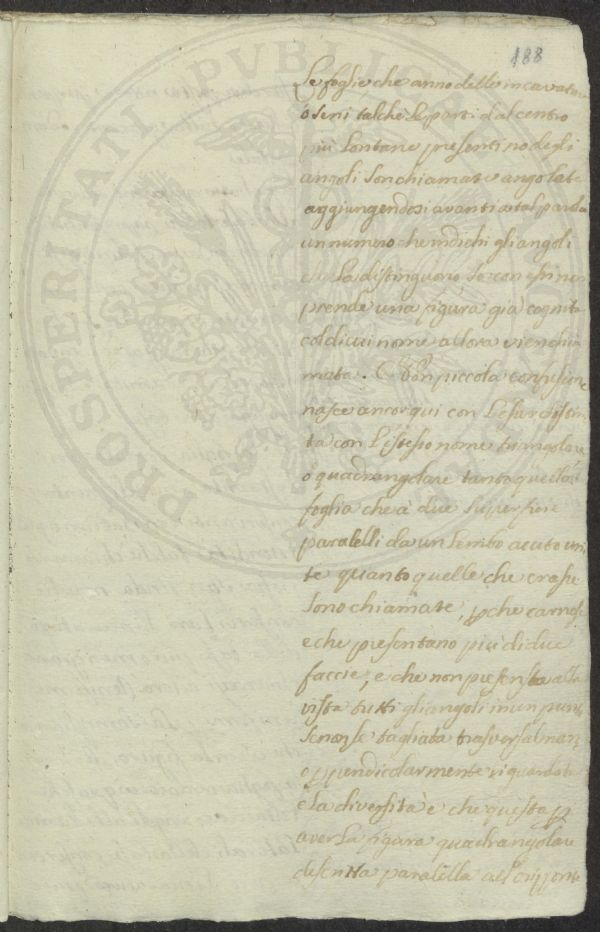 188
Le foglie che anno delle incavature
o seni talche le parti dal centro
più lontane presentino degli
angoli son chiamate angolate
aggiungendosi avanti a tal parola
un numero che indichi gli angoli
che la distinguono se con essi non
prende una figura già cognita
col di cui nome allora vien chia
mata. Non piccola confusione
nasce ancor qui con l'esser distin
ta con l'istesso nome triangolare
o quadrangolare tanto quella
foglia che à due superficie
paralelli da un lembo acuto uni
te quanto quelle che crasse
sono chiamate, perche carnose
e che presentano più di due
faccie, e che non presenta alla
vista tutti gli angoli in un punto
se non se tagliata trasversalmen
o perpendicolarmente riguardata
e la diversità è che questa per
aver la figura quadrangolare
descritta paralella all'orizzonte
PROSPERITATI PVBLICAE